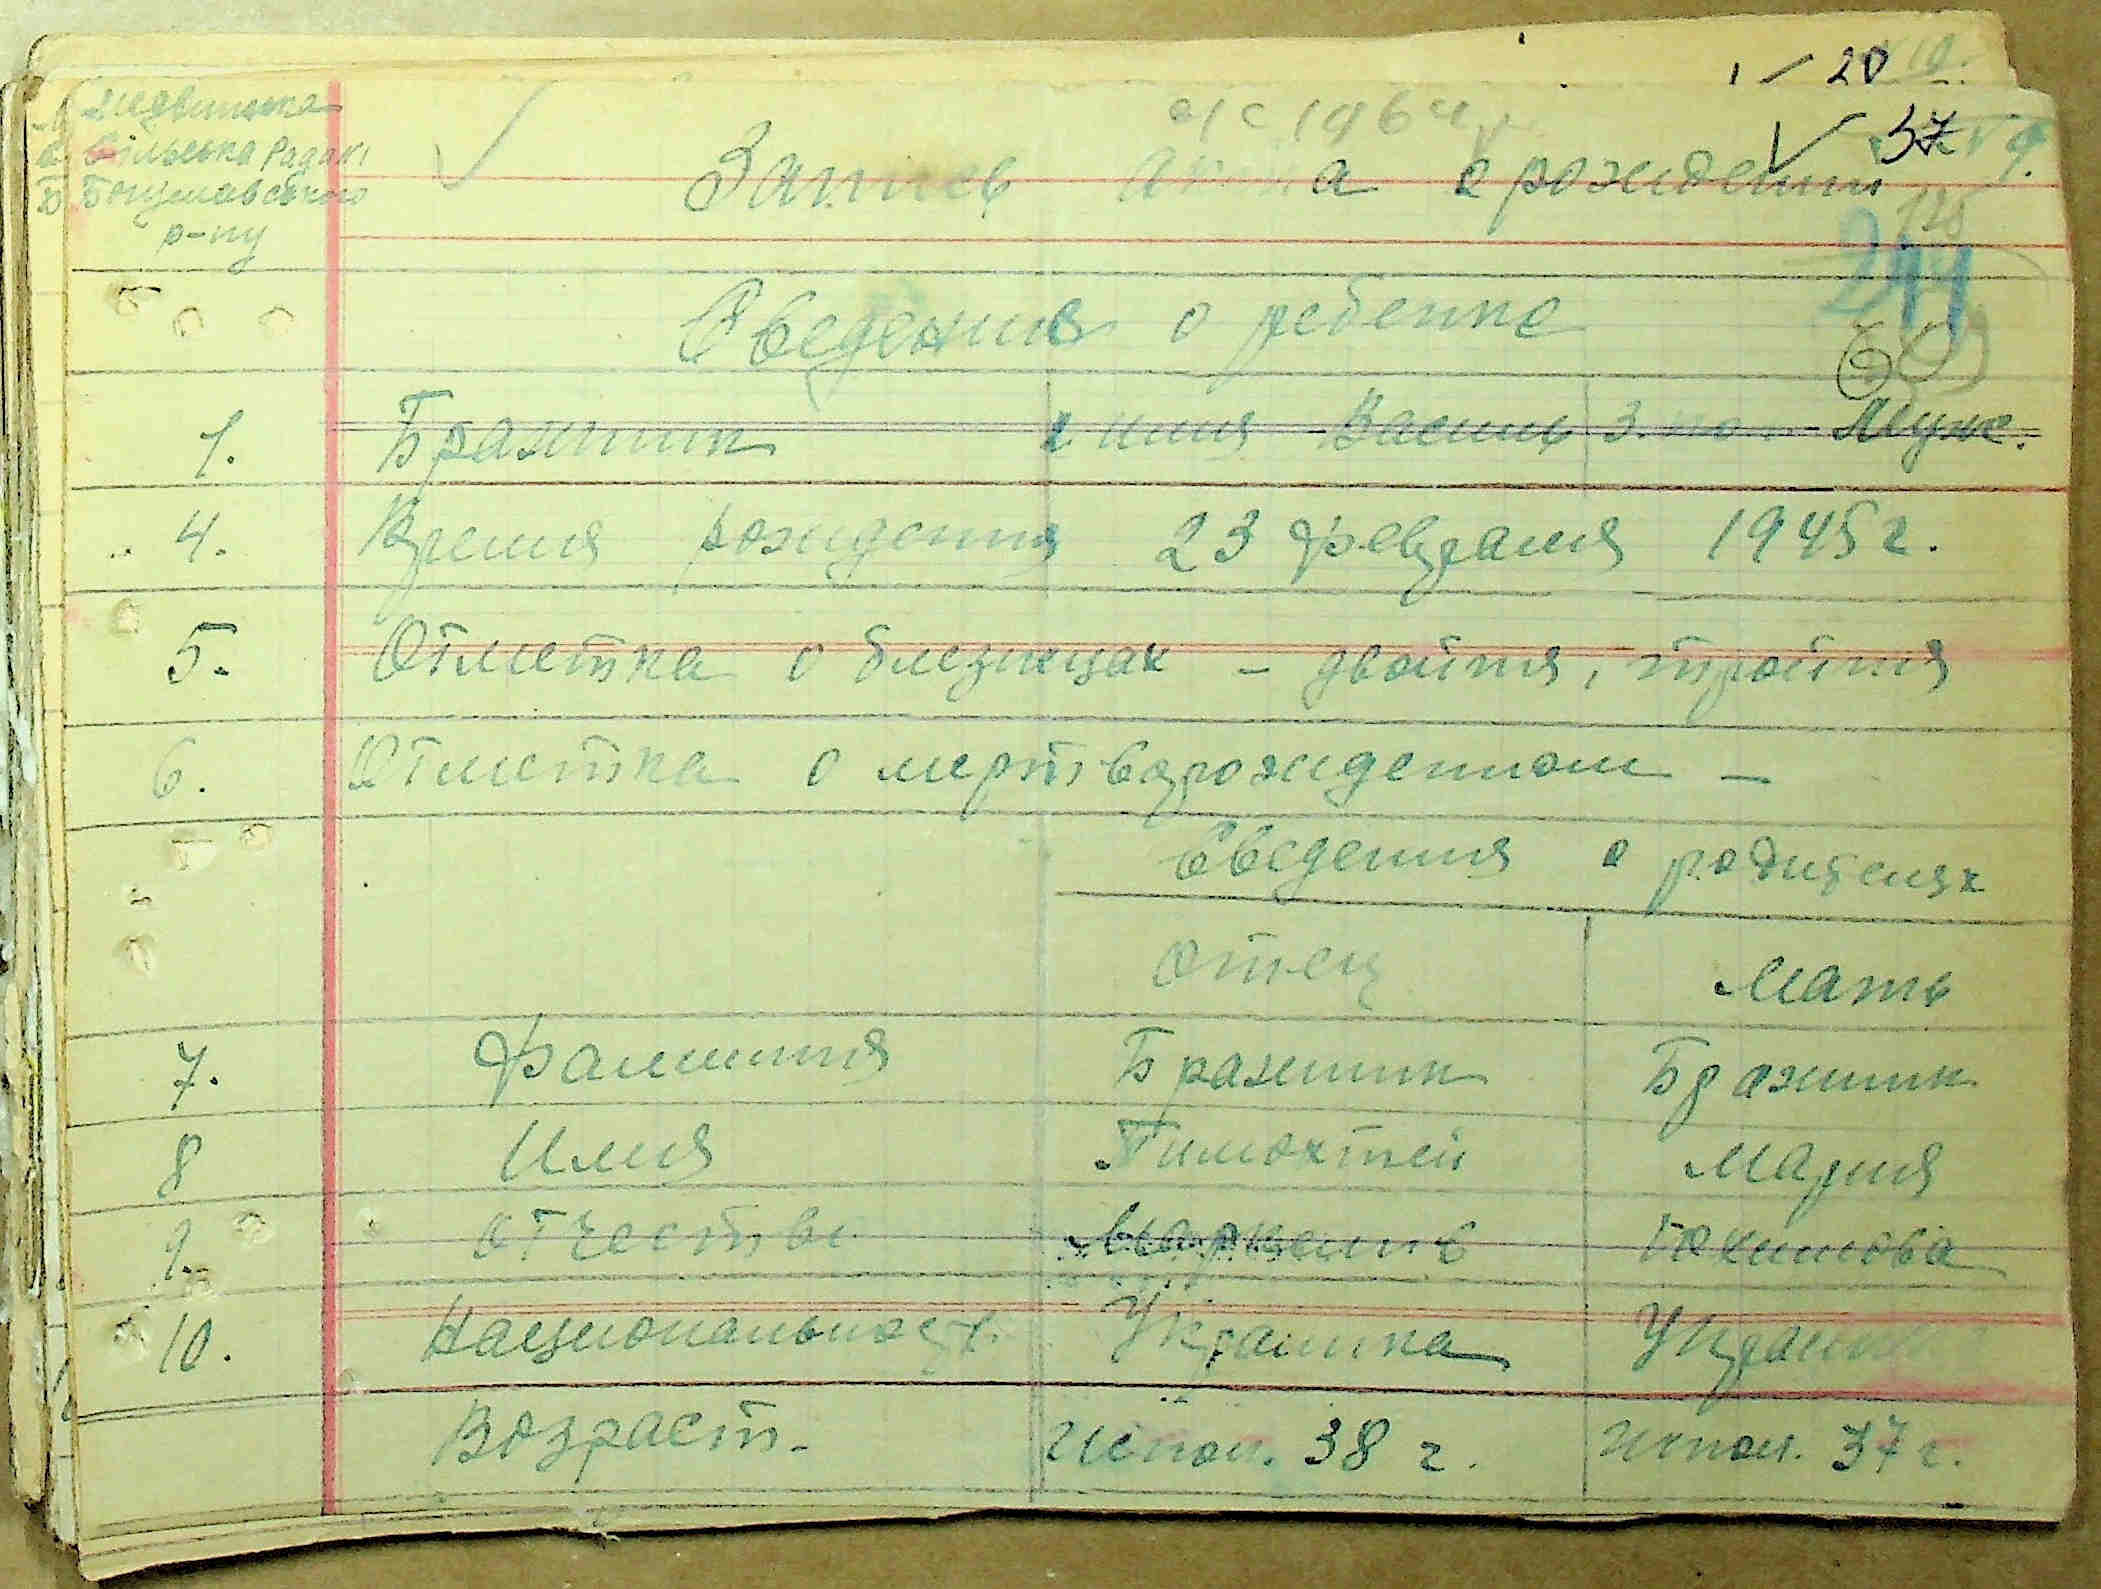 20
Медвинська
Сільська Рада
Богуславського
р-ну
37
Запись акта о рождении
Сведения о ребенке
1. Бражник 2 имя Василь 3. пол Муж.
4. Время рождения 23 февраля 1945 г.
5. Отметка о близнецах - двойня, тройня
6. Отметка о мертворожденном -
Сведения о родителях
Отец Мать
7. Фамилия Бражник Бражник
8 Имя Тимохтей Мария
9. Отчество
10. Национальност. Украинка
Возраст. Испол. 38 г. Испол. 37 г.